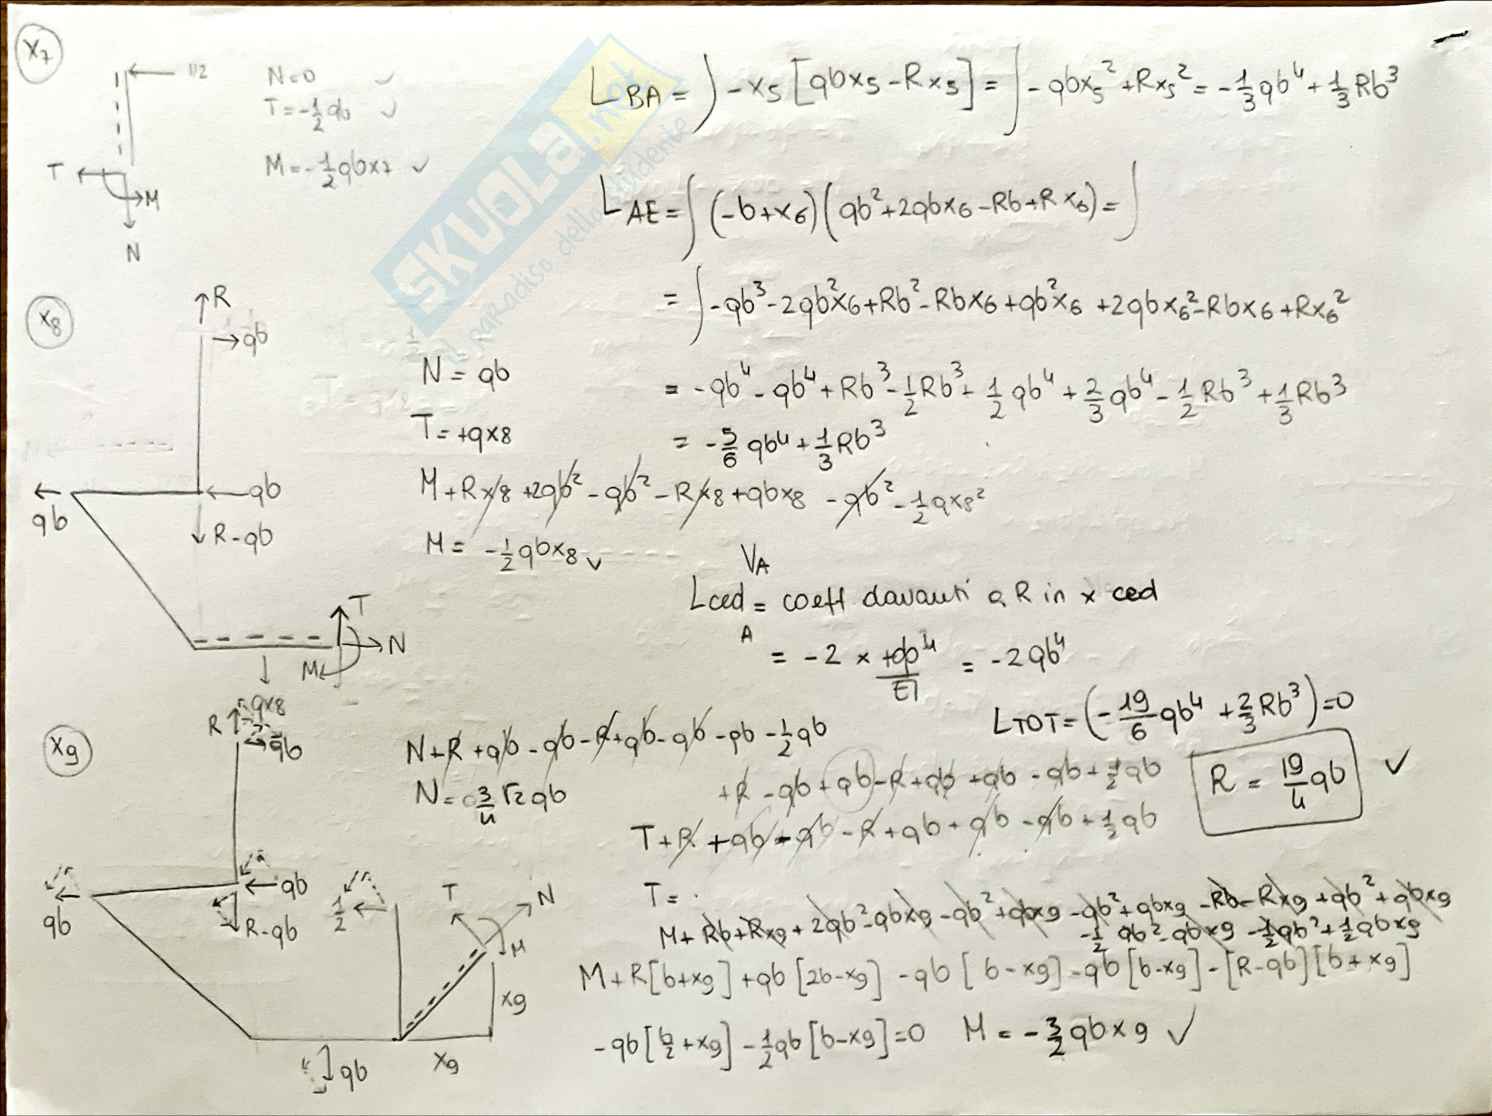 x7
1/2
N=0 ✓
T=-1/2 qb ✓
M=-1/2 qbx7 ✓
T
M
N
L BA = ∫ -x5 [qbx5 - Rx5] = ∫ -qbx5² + Rx5² = -1/3 qb⁴ + 1/3 Rb³
L AE = ∫ (-b+x6)(qb²+2qbx6-Rb+Rx6) = ∫
= ∫ -qb³-2qb²x6+Rb²-Rbx6+qb²x6+2qbx6²-Rbx6+Rx6²
= -qb⁴-qb⁴+Rb³-1/2Rb³+1/2qb⁴+2/3qb⁴-1/2Rb³+1/3Rb³
= -5/6 qb⁴+1/3Rb³
SKUOLA.net
il paradiso dello studente
x8
R
qb
qb
qb
R-qb
T
N
M
qx8
N = qb
T=+qx8
M+Rx8+2qb²-qb²-Rx8+qbx8-qb²-1/2qx8²
M= -1/2qbx8 ✓
VA
Lced = coeff davanti a R in x ced
A
= -2 x +qb⁴/EI = -2qb⁴
LTOT=(-19/6qb⁴+2/3Rb³)=0
R = 19/4qb ✓
x9
R
qb
qb
qb
R-qb
1/2
T
N
M
x9
x9
qb
N+R+qb-qb-R+qb-qb-qb-1/2qb
N= 3/4√2qb
+R-qb+qb-R+qb+qb-qb+1/2qb
T+R+qb-qb-R+qb+qb-qb+1/2qb
T=
M+Rb+Rx9+2qb²-qbx9-qb²+qbx9-qb²+qbx9-Rb-Rx9+qb²+qbx9
-1/2qb²-qbx9-1/2qb²+1/2qbx9
M+R[b+x9]+qb[2b-x9]-qb[b-x9]-qb[b-x9]-[R-qb][b+x9]
-qb[b/2+x9]-1/2qb[b-x9]=0 M=-3/2qbx9 ✓